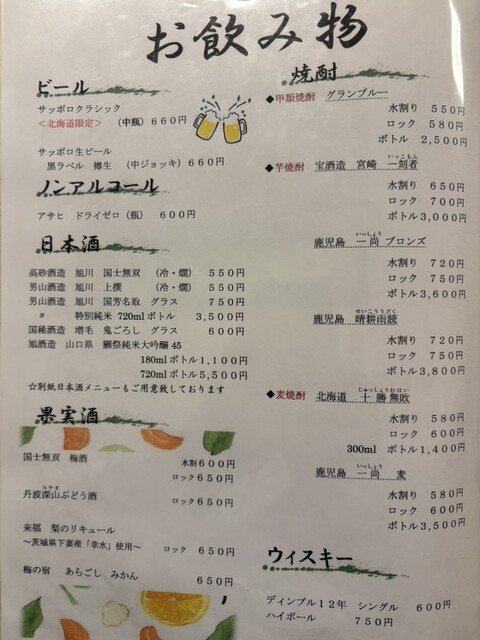 お飲み物
ビール
サッポロクラシック
＜北海道限定＞ （中瓶） 660円
サッポロ生ビール
黒ラベル 樽生 （中ジョッキ） 660円
ノンアルコール
アサヒ ドライゼロ（瓶） 600円
日本酒
高砂酒造 旭川 国士無双 （冷・燗） 550円
男山酒造 旭川 上撰 （冷・燗） 550円
男山酒造 旭川 国芳名取 グラス 750円
〃 特別純米 720mlボトル 3,500円
国稀酒造 増毛 鬼ごろし グラス 600円
旭酒造 山口県 獺祭純米大吟醸45
180mlボトル1,100円
720mlボトル5,500円
☆別紙日本酒メニューもご用意致しております
果実酒
国士無双 梅酒 水割600円
ロック650円
丹波深山ぶどう酒 ロック650円
みやま
来福 梨のリキュール
～茨城県下妻産「幸水」使用～ ロック 650円
梅の宿 あらごし みかん 650円
焼酎
◆甲類焼酎 グランブルー
水割り 550円
ロック 580円
ボトル 2,500円
いっこもん
◆芋焼酎 宝酒造 宮崎 一刻者
水割り 650円
ロック 700円
ボトル3,000円
いっしょう
鹿児島 一尚 ブロンズ
水割り 720円
ロック 750円
ボトル3,600円
せいこううどく
鹿児島 晴耕雨読
水割り 720円
ロック 750円
ボトル3,800円
じゅっしょうむはい
◆麦焼酎 北海道 十勝無敗
水割り 580円
ロック 600円
300ml ボトル1,400円
いっしょう
鹿児島 一尚 麦
水割り 580円
ロック 600円
ボトル3,500円
ウィスキー
ディンプル12年 シングル 600円
ハイボール 750円